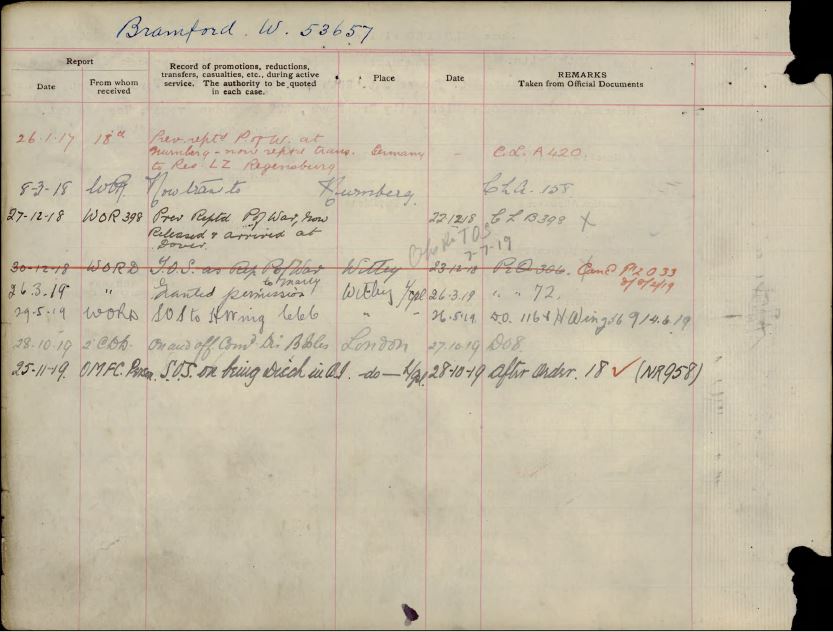 Bramford. W. 53657
Report
Date
From whom received
Record of promotions, reductions, transfers, casualties, etc., during active service. The authority to be quoted in each case.
Place
Date
REMARKS
Taken from Official Documents
26.1.17 18th Prev. rept'd P. of W. at
Nurnberg - now rept'd trans. Germany - C.L. A420.
to Res. LZ Regensburg
8-3-18 Now trans to Nurnberg. 158
27-12-18 WOR 398 Prev Reptd P of War, now 22.12.18 C L B398 X
Released & arrived at
Dover.
TOS
7-7-19
30-12-18 WORD T.O.S. as Rep P of War Witley 23-12-18 Pt O 306. Canc P2 O 33
26.3.19 " Granted permission to marry Witley 26.3.19 " " 72.
29.5.19 SOS to H Wing Witley " - 26.5.19 D.O. 116 H Wing 9/4.6.19
28.10.19 London 27.10.19
25-11-19. OMFC. S.O.S. on being Disch in B.I. -do- 28-10-19 After Order. 18 ✓ (NR958)